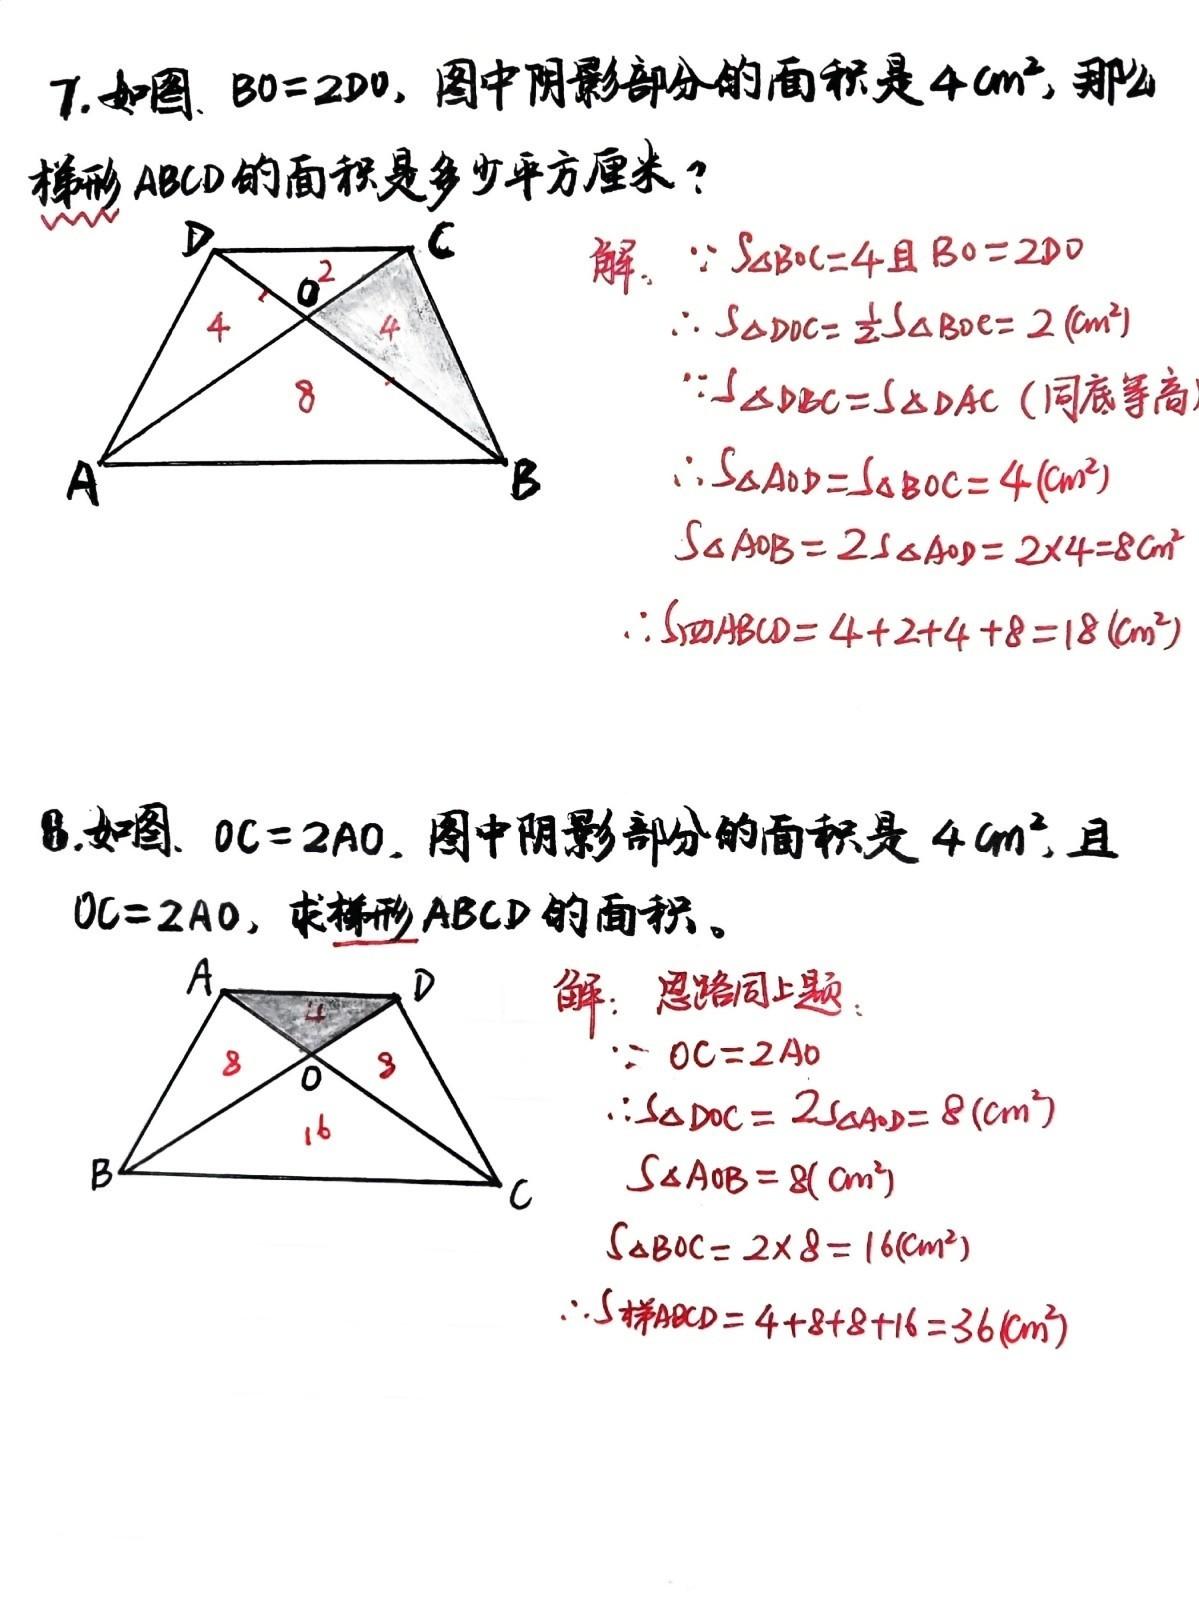 7.如图. BO=2DO, 图中阴影部分的面积是4cm², 那么
梯形ABCD的面积是多少平方厘米?
D
C
2
O
4
4
8
A
B
解. ∵ S△BOC=4且BO=2DO
∴ S△DOC=½S△BOC=2(cm²)
∵S△DBC=S△DAC(同底等高)
∴S△AOD=S△BOC=4(cm²)
S△AOB=2S△AOD=2×4=8cm²
∴S四ABCD=4+2+4+8=18(cm²)
8.如图. OC=2AO. 图中阴影部分的面积是4cm², 且
OC=2AO, 求梯形ABCD的面积。
A
D
4
8
8
O
16
B
C
解: 思路同上题:
∵ OC=2AO
∴S△DOC=2S△AOD=8(cm²)
S△AOB=8(cm²)
S△BOC=2×8=16(cm²)
∴S梯ABCD=4+8+8+16=36(cm²)